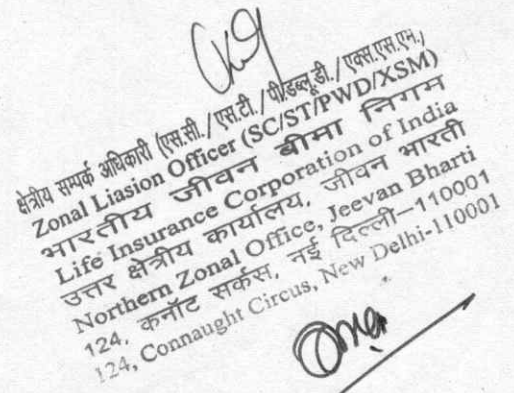 क्षेत्रीय सम्पर्क अधिकारी (एस.सी./एस.टी./पी.डब्लू.डी./एक्स.एस.एम.)
Zonal Liasion Officer (SC/ST/PWD/XSM)
भारतीय जीवन बीमा निगम
Life Insurance Corporation of India
उत्तर क्षेत्रीय कार्यालय, जीवन भारती
Northern Zonal Office, Jeevan Bharti
124, कनॉट सर्कस, नई दिल्ली-110001
124, Connaught Circus, New Delhi-110001